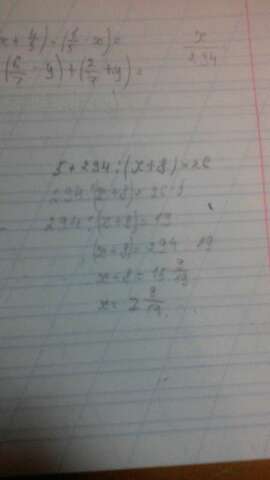 x + 4/5) - (1/5 - x) =
(6/7 - y) + (2/7 + y) =
x/294
5 + 294 : (x + 8) = 26
294 : (x + 8) = 26 - 5
294 : (x + 8) = 19
(x + 8) = 294 : 19
x + 8 = 15 9/19
x = 7 9/19